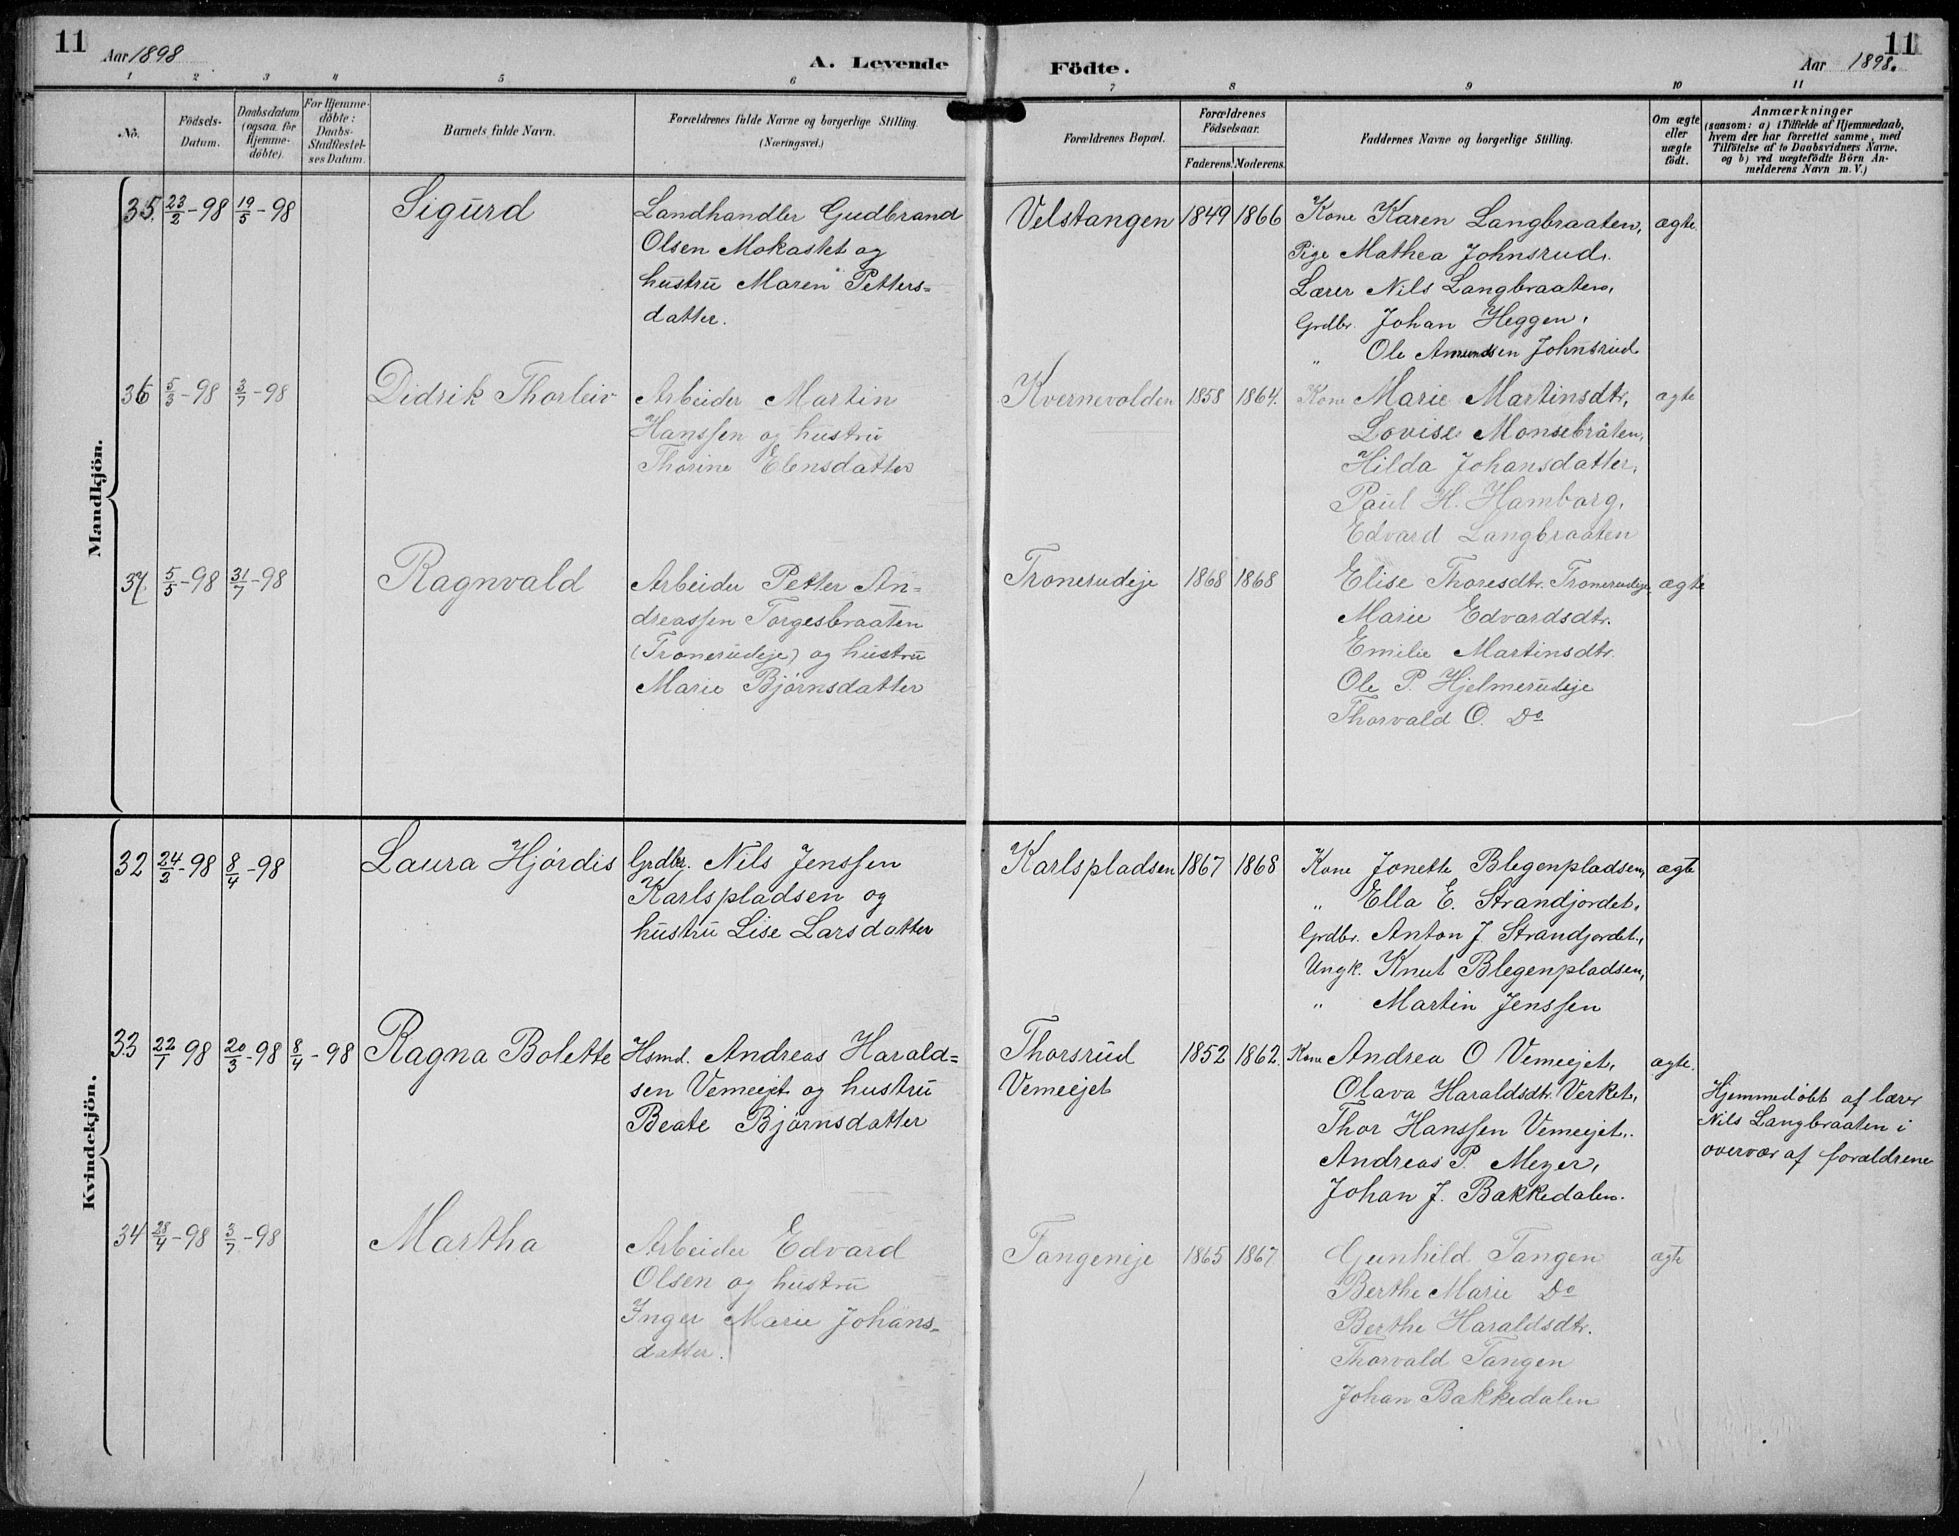 11
Aar 1898
A. Levende
Födte.
Aar 1898.
11
1 2 3 4 5 6 7 8 9 10 11
No.
Födsels-
Datum.
Daabsdatum
(ogsaa for
Hjemme-
døbte).
For Hjemme-
døbte:
Daabs-
Stadfæstel-
ses Datum.
Barnets fulde Navn.
Forældrenes fulde Navne og borgerlige Stilling.
(Næringsvei.)
Forældrenes Bopæl.
Forældrenes
Födselsaar.
Faderens. Moderens.
Faddernes Navne og borgerlige Stilling.
Om ægte
eller
uægte
født.
Anmærkninger
(saasom: a) i Tilfælde af Hjemmedaab,
hvem der har forrettet samme, med
Tilföielse af to Daabsvidners Navne.
og b) ved uægtefödte Börn An-
melderens Navn m. V.)
Mandkjön.
35. 23/2-98 19/5-98
Sigurd
Landhandler Gudbrand
Olsen Mokastet og
hustru Maren Petters=
datter.
Velstangen
1849 1866
Kone Karen Langbraaten,
Pige Mathea Johnsrud.
Lærer Nils Langbraaten,
Grdbr. Johan Heggen,
„ Ole Amundsen Johnsrud
ægte.
36 5/3-98 3/7-98
Didrik Thorleiv
Arbeider Martin
Hanssen og hustru
Thorine Elensdatter
Kvernevolden
1858 1864.
Kone Marie Martinsdtr,
Lovise Monsebråten,
Hilda Johansdatter,
Paul H. Hamborg,
Edvard Langbraaten
ægte
37 5/5-98 31/7-98
Ragnvald
Arbeider Petter An=
dreassen Torgesbraaten
(Tronerudeje) og hustru
Marie Bjørnsdatter
Tronerudeje
1868 1868
Elise Thoresdtr. Tronerudeje
Marie Edvardsdtr.
Emilie Martinsdtr.
Ole P. Hjelmerudeje
Thorvald O. Do
ægte
Kvindekjön.
32 24/2-98 8/4-98
Laura Hjördis
Grdbr. Nils Jenssen
Karlspladsen og
hustru Lise Larsdatter
Karlspladsen
1867 1868
Kone Jonette Blegenpladsen,
„ Ella E. Strandjordet,
Grdbr. Anton J. Strandjordet,
Ungk. Knut Blegenpladsen,
„ Martin Jenssen
ægte
33 22/1 98 20/3-98 8/4-98
Ragna Bolette
Hsmd. Andreas Harald=
sen Vemeejet og hustru
Beate Bjørnsdatter
Thorsrud
Vemeejet
1852 1862.
Kone Andrea O Vemeejet,
Olava Haraldsdtr. Verket,
Thor Hanssen Vemeejet,
Andreas P. Meyer,
Johan J. Bakkedalen.
ægte.
Hjemmedöbt af lærer
Nils Langbraaten i
overvær af forældrene
34 28/4-98 3/7-98
Martha
Arbeider Edvard
Olsen og hustru
Inger Marie Johans-
datter.
Tangeneje
1865 1867.
Gunhild Tangen
Berthe Marie Do
Berthe Haraldsdtr.
Thorvald Tangen
Johan Bakkedalen
ægte